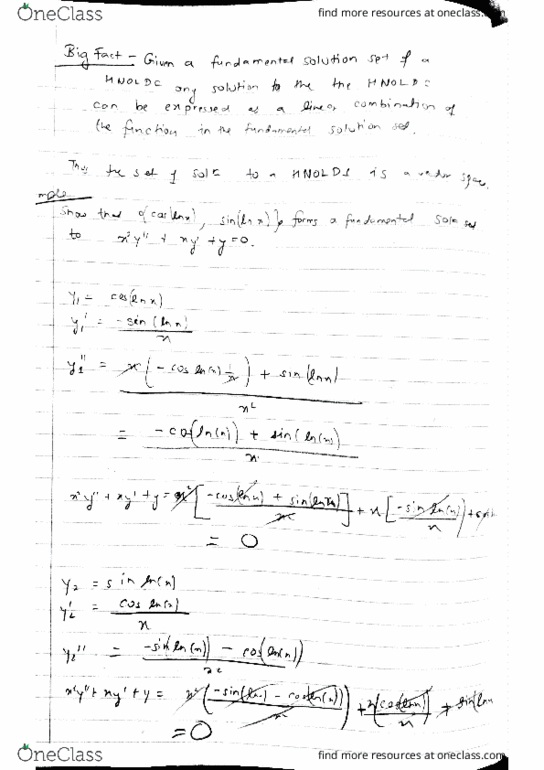 OneClass
find more resources at oneclass.com
Big Fact - Given a fundamental solution set of a
HNOLDE any solution to the the HNOLDE
can be expressed as a linear combination of
the function in the fundamental solution set.
Thus the set of solⁿˢ to a HNOLDE is a vector space.
mple
Show that {cos(lnx), sin(lnx)} forms a fundamental solⁿ set
to x²y'' + xy' + y = 0.
y₁ = cos(lnx)
y₁' = -sin(lnx)/x
y₁'' = x(-cos ln(x) 1/x) + sin(lnx)
x²
= -cos(ln(x)) + sin(ln(x))
x²
x²y'' + xy' + y = x²[-cos(lnx) + sin(lnx)/x²] + x[-sin ln(x)/x] +
= 0
y₂ = sin ln(x)
y₂' = cos ln(x)
x
y₂'' = -sin(ln(x)) - cos(ln(x))
x²
x²y'' + xy' + y = x²(-sin(lnx) - cos(ln(x))/x²) + x(cos(lnx))/x + sin(lnx
= 0
OneClass
find more resources at oneclass.com